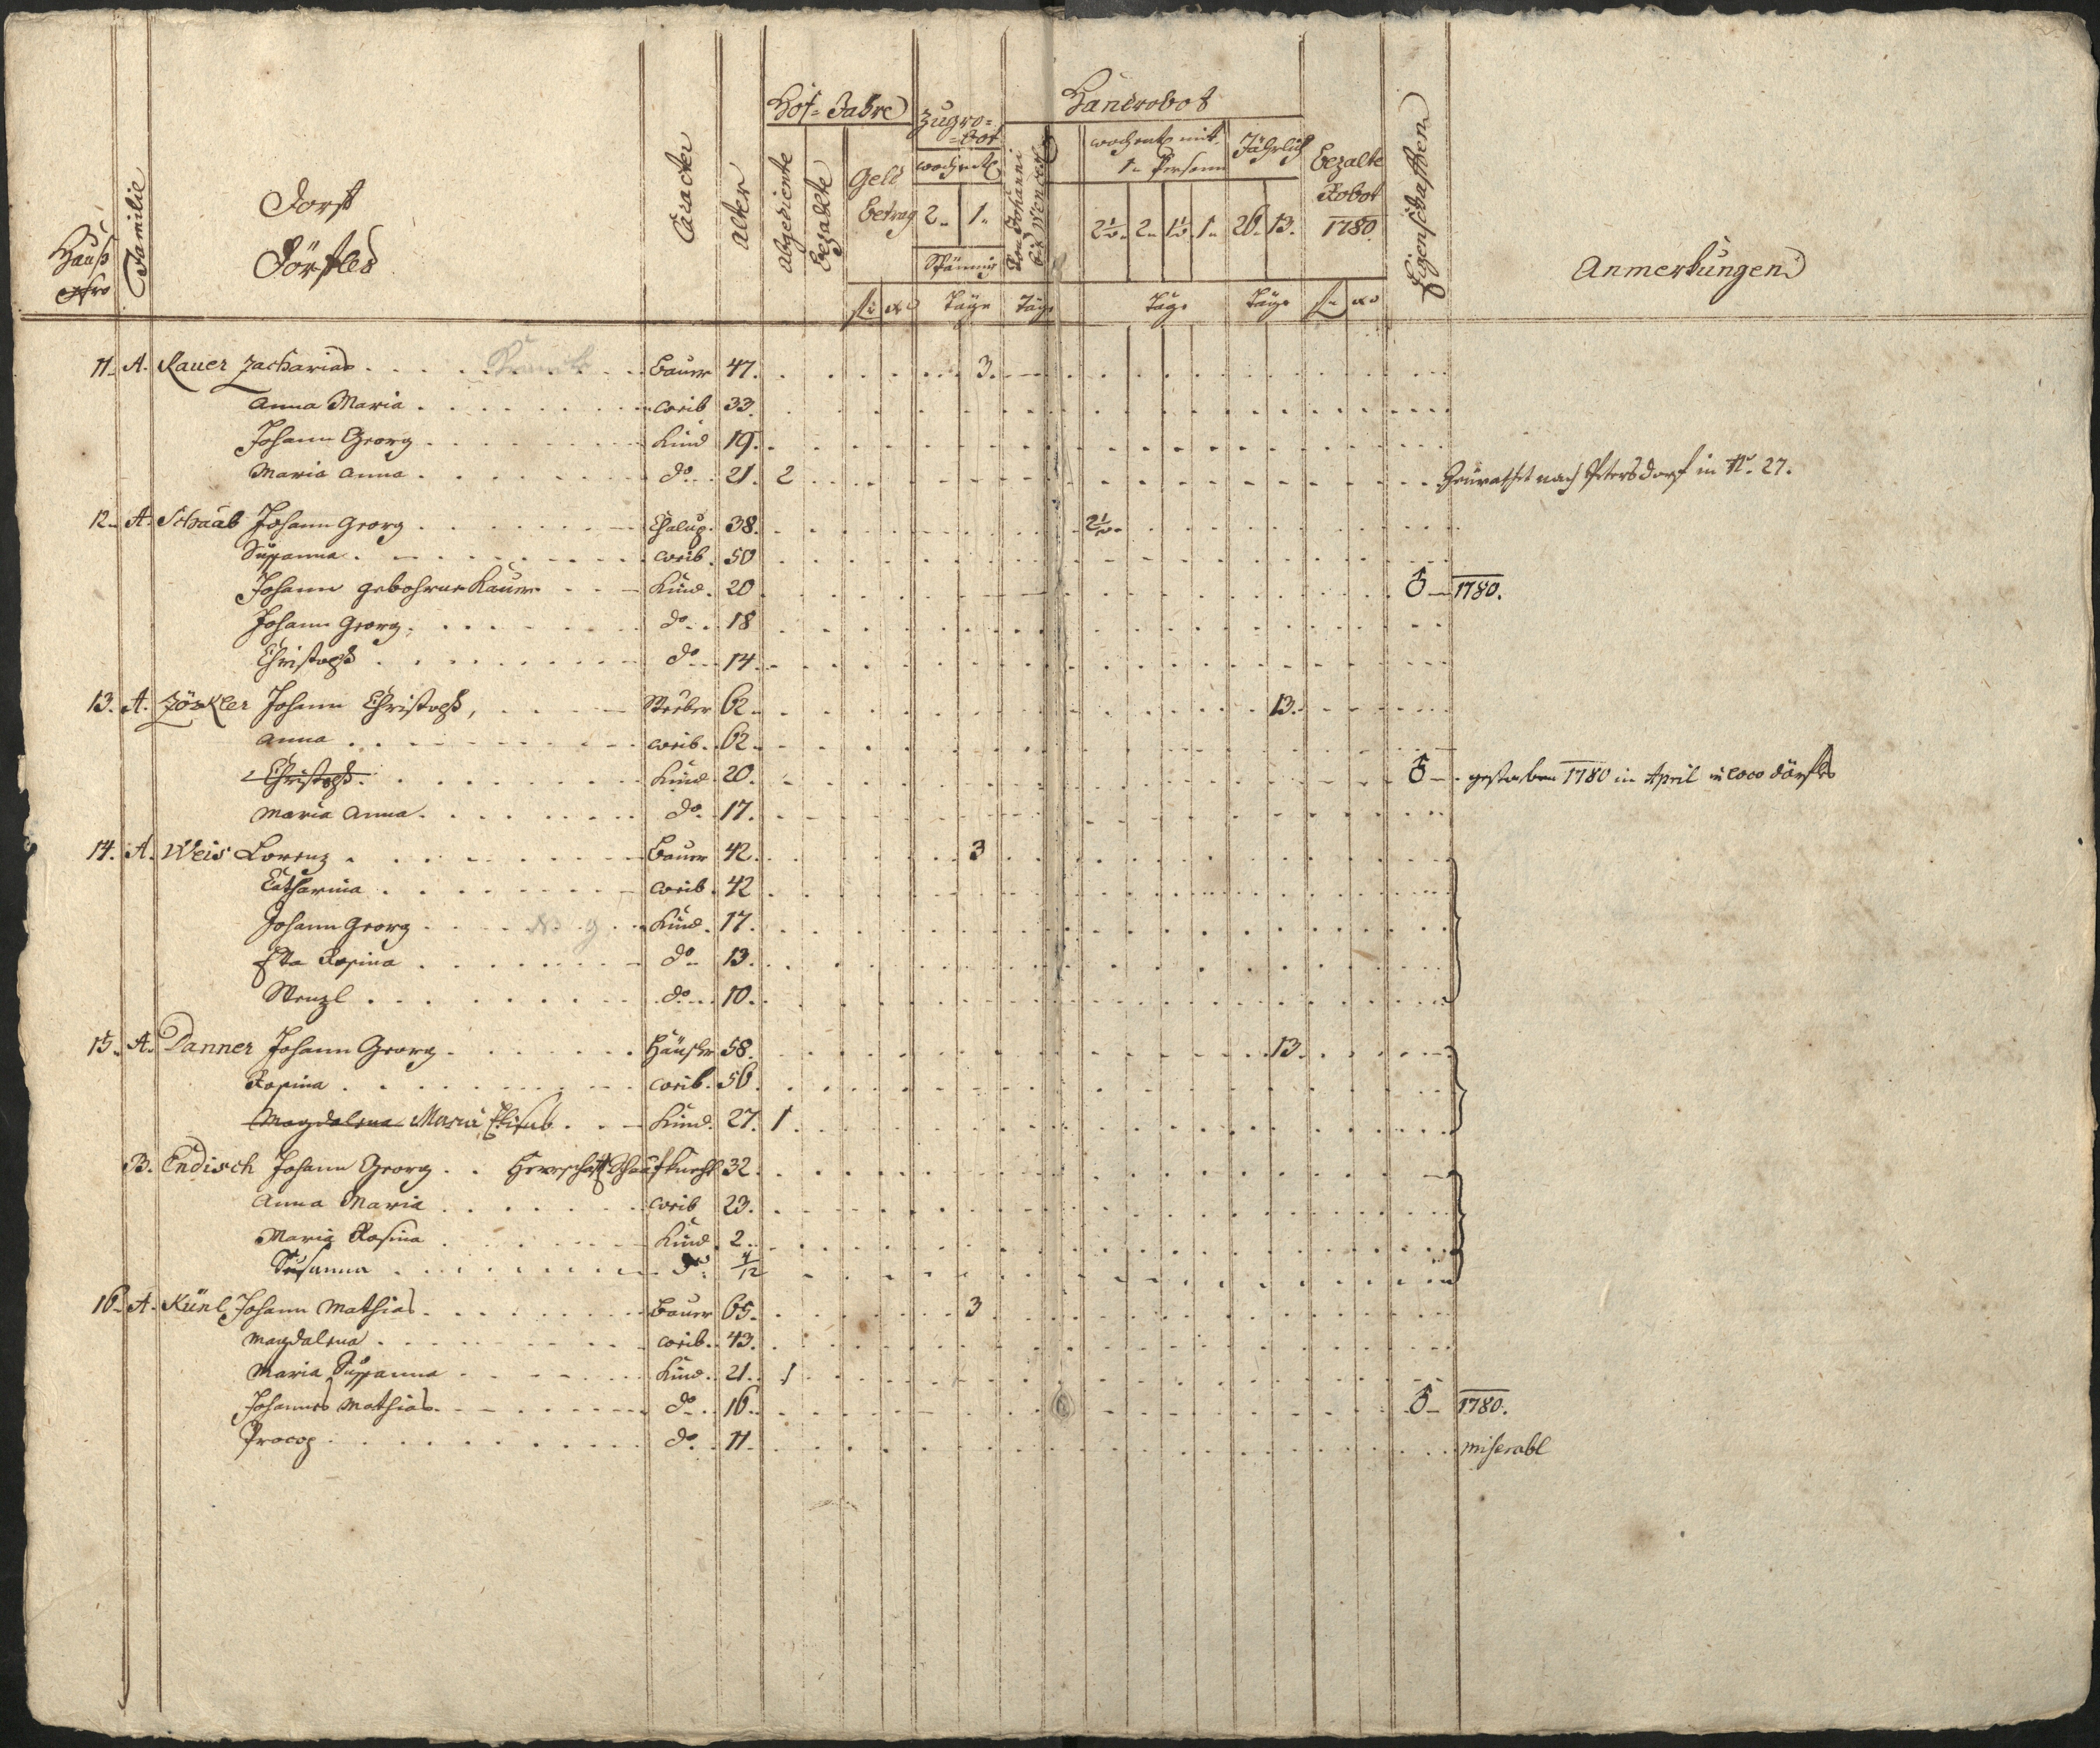 Hauß
Nro
Familie
Dorf
Dörfles
Caracter
alter
Hof-Jahre
abgediente
bezahlte
Geld
betrag
Zugro-
-bot
wochentl
2. 1.
Spännig
Handrobot
Von Johanni
bis Wenzesl
wochentl mit
1 Persohn
2½. 2. 1½. 1.
Jährlich
26. 13.
bezalte
Robot
1780
Eigenschafften
Anmerkungen
fl xr Täge Täge Täge Täge fl xr
11. A. Rauer Zacharias Bauer 47. 3.
Anna Maria weib 33.
Johann Georg Kind 19.
Maria Anna do 21. 2 Heurathet nach Petersdorf in No. 27.
12. A. Schaab Johann Georg Chalup. 38. 2½.
Susanna weib. 50
Johann gebohrner Rauer Kind. 20 ♂ 1780.
Johann Georg do 18
Christoph do 14.
13. A. Zöckler Johann Christoph, 62. 13.
Anna weib. 62.
Christoph Kind. 20. ♂ gestorben 1780 in April in loco Dörfles
Maria Anna do 17.
14. A. Weis Lorenz Bauer 42. 3
Catharina weib. 42
Johann Georg Kind. 17.
Rosina do 13.
Wenzl do 10.
15. A. Danner Johann Georg Häusler 58. 13.
Rosina weib. 56.
Magdalena Maria Elisab. Kind. 27. 1
B. Endisch Johann Georg Herrschaftl Schaafknecht 32.
Anna Maria weib 23.
Maria Rosina Kind. 2.
Susanna do 4/12
16. A. Künl Johann Mathias Bauer 65. 3
Magdalena weib. 43.
Maria Susanna Kind. 21. 1
Johannes Mathias do 16. ♂ 1780.
Procop do 11. miserabl